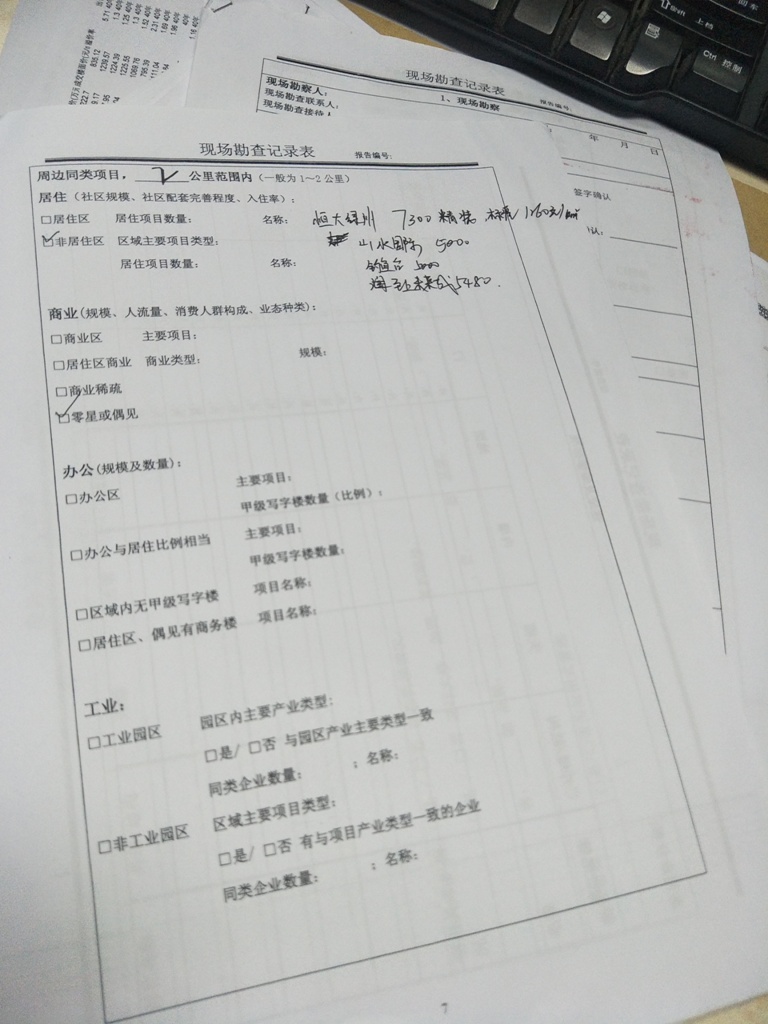 现场勘查记录表
报告编号:
1、现场勘察
现场勘察人:
现场勘查联系人:
现场勘查接待人
年 月 日
签字确认
现场勘查记录表
报告编号:
周边同类项目, 2 公里范围内(一般为1~2公里)
居住(社区规模、社区配套完善程度、入住率):
□居住区 居住项目数量: 名称: 恒大绿洲 7300 精装
☑非居住区 区域主要项目类型: 山水国际 5000
居住项目数量: 名称: 钓鱼台 5000
5480.
商业(规模、人流量、消费人群构成、业态种类):
□商业区 主要项目:
□居住区商业 商业类型: 规模:
□商业稀疏
☑零星或偶见
办公(规模及数量):
□办公区 主要项目:
甲级写字楼数量(比例):
□办公与居住比例相当 主要项目:
甲级写字楼数量:
□区域内无甲级写字楼 项目名称:
□居住区、偶见有商务楼 项目名称:
工业:
□工业园区 园区内主要产业类型:
□是/ □否 与园区产业主要类型一致
同类企业数量: ; 名称:
□非工业园区 区域主要项目类型:
□是/ □否 有与项目产业类型一致的企业
同类企业数量: ; 名称:
7
Shift 上档
Ctrl 控制